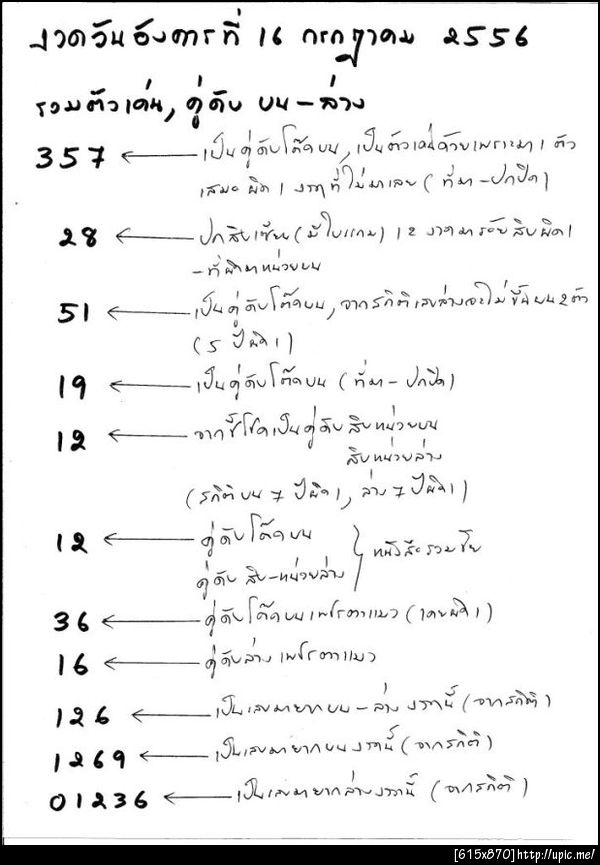 งวดวันอังคารที่ 16 กรกฎาคม 2556
รวมตัวเด่น, คู่ดับ บน-ล่าง
357 ← เป็นคู่ดับโต๊ดบน, เป็นตัวเด่นด้วยเพราะมา 1 ตัว
เสมอ ผิด 1 งวดที่ไม่มาเลย (ที่มา-ปกปิด)
28 ← ปกสิบเซียน (มีใบแถม) 12 งวดมาร้อยสิบผิด 1
- ที่ผิดมาหน่วยบน
51 ← เป็นคู่ดับโต๊ดบน, จากสถิติเลขล่างจะไม่ขึ้นบน 2 ตัว
(5 ปีผิด 1)
19 ← เป็นคู่ดับโต๊ดบน (ที่มา-ปกปิด)
12 ← จากชี้โชคเป็นคู่ดับ สิบหน่วยบน
สิบหน่วยล่าง
(สถิติบน 7 ปีผิด 1, ล่าง 7 ปีผิด 1)
12 ← คู่ดับโต๊ดบน
คู่ดับ สิบ-หน่วยล่าง } หนังสือรวมชัย
36 ← คู่ดับโต๊ดบนเพชรตาแมว (เคยผิด 1)
16 ← คู่ดับล่างเพชรตาแมว
126 ← เป็นเลขมายากบน-ล่าง งวดนี้ (จากสถิติ)
1269 ← เป็นเลขมายากบนงวดนี้ (จากสถิติ)
01236 ← เป็นเลขมายากล่างงวดนี้ (จากสถิติ)
[615x870]http://upic.me/